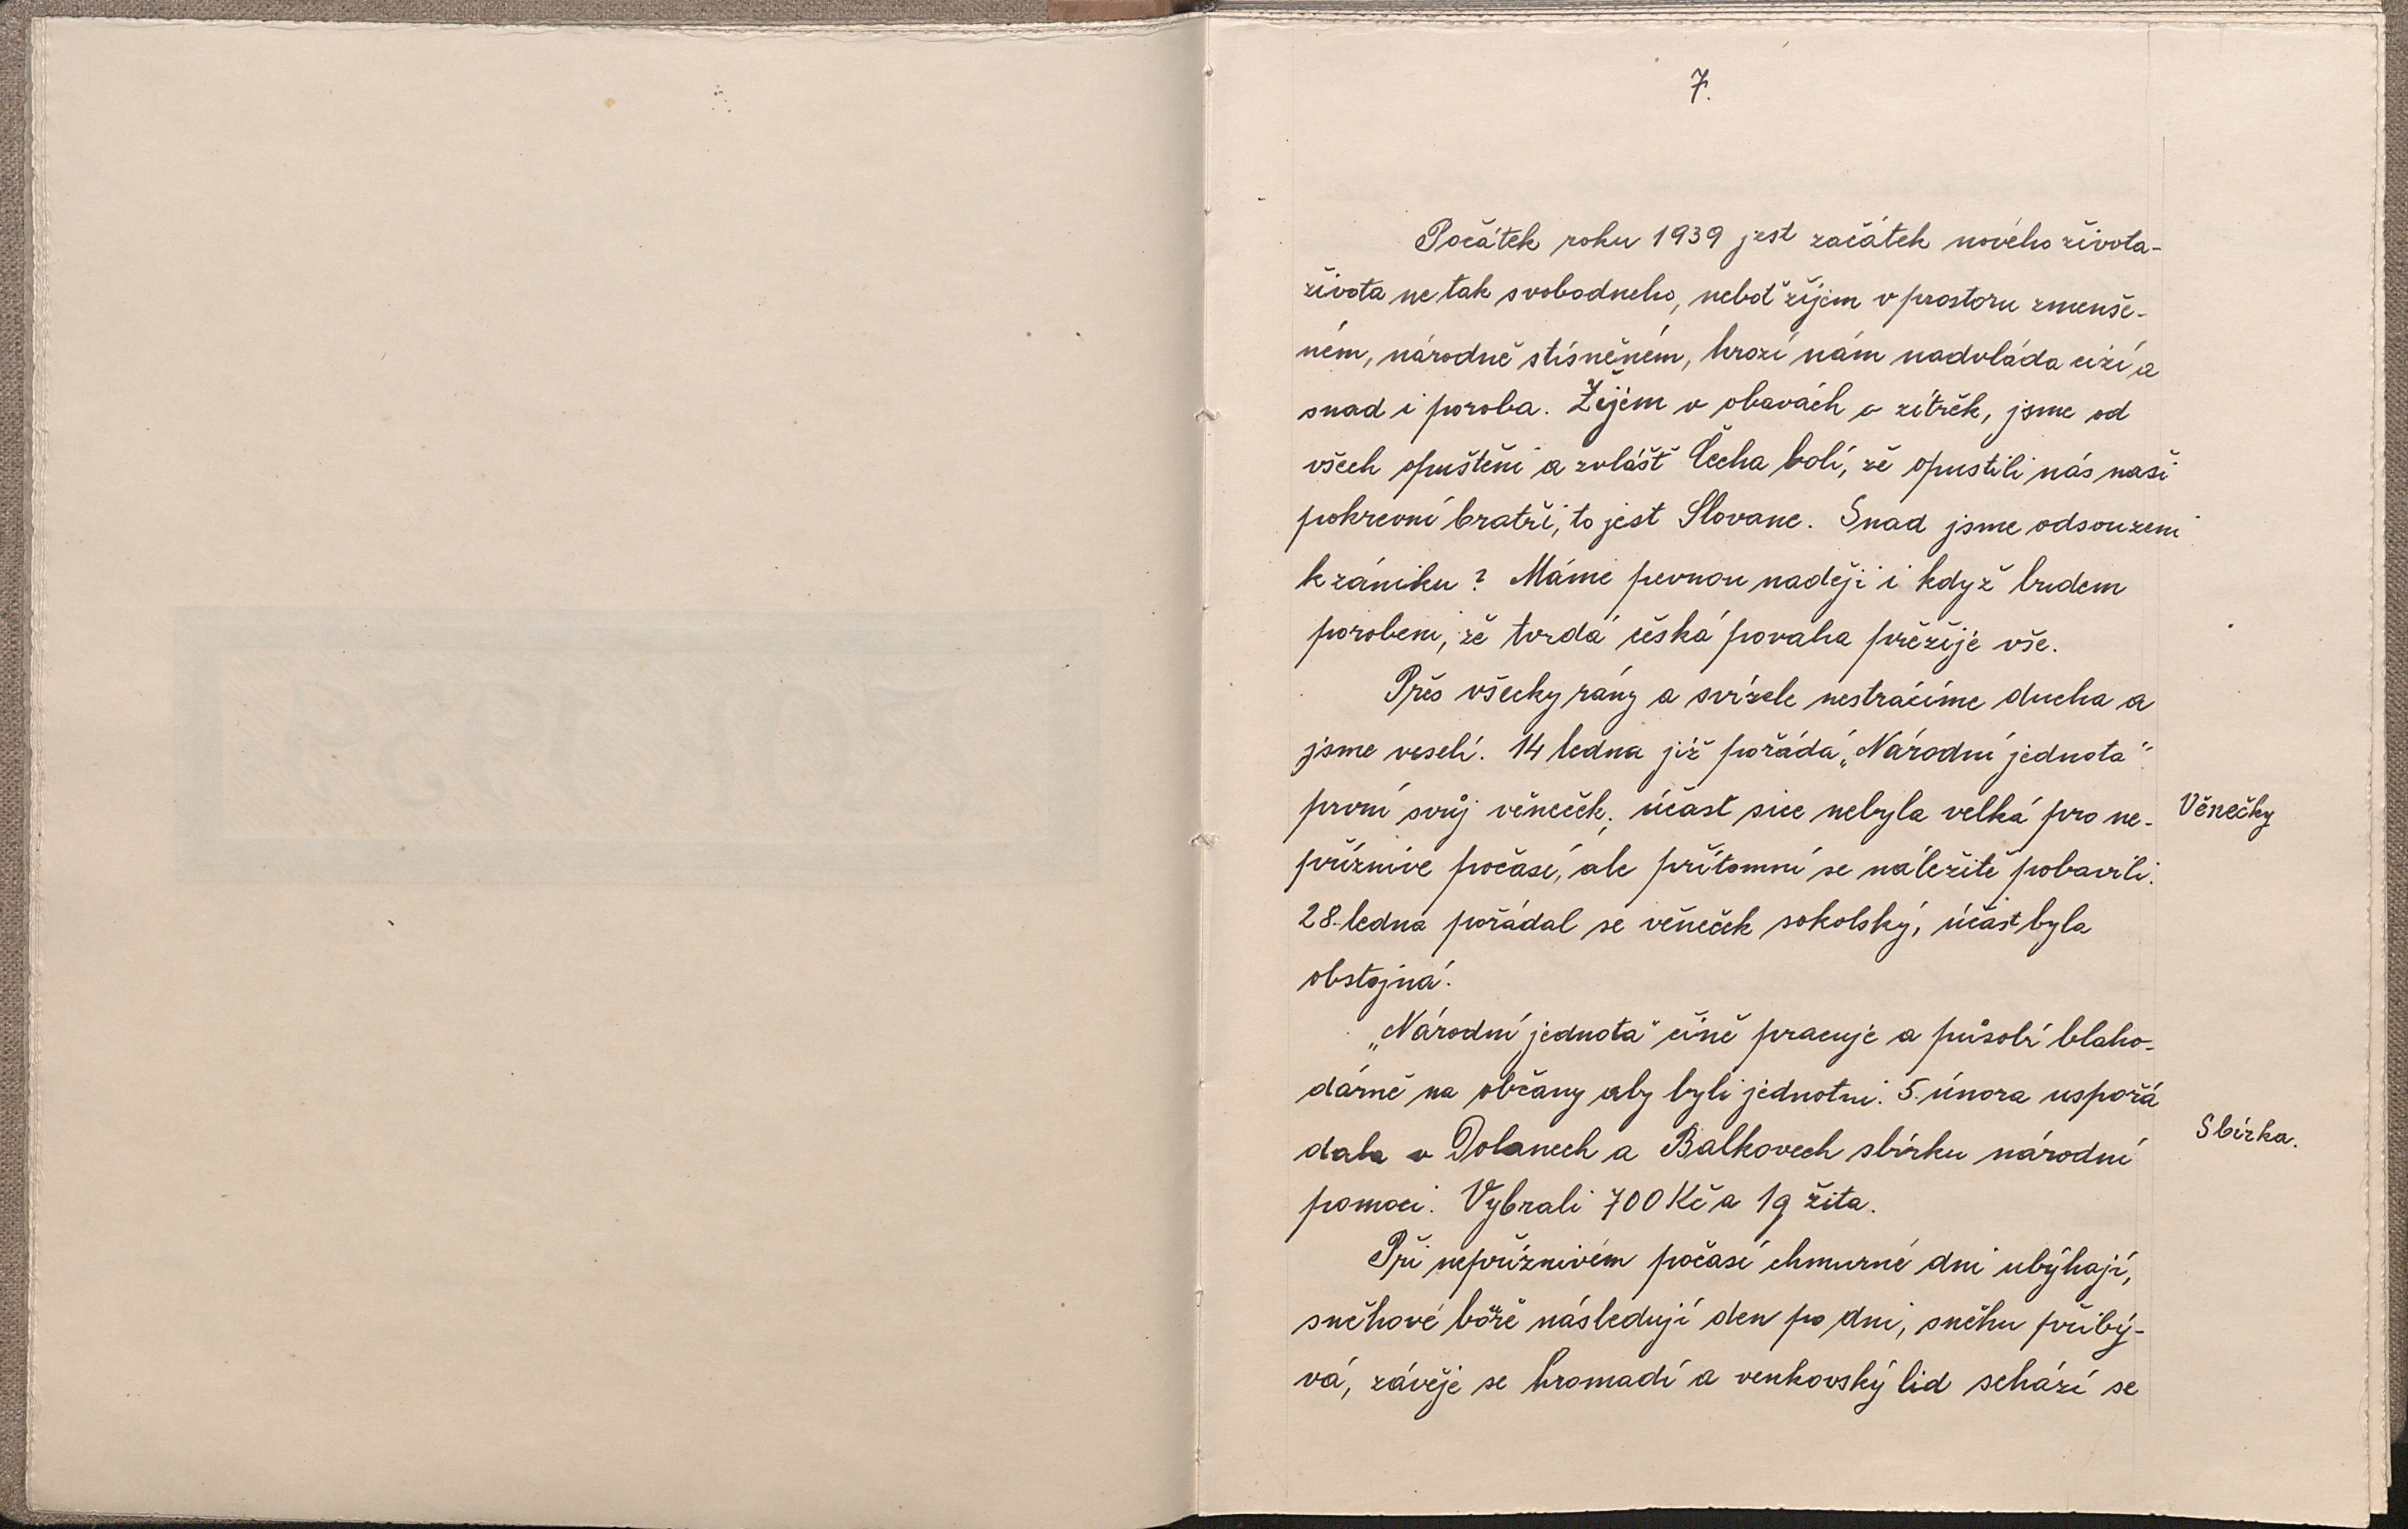 7.
Počátek roku 1939 jest začátek nového života-
života ne tak svobodneho, neboť žijem v prostoru zmenše-
ném, národně stísněném, hrozí nám nadvláda cizí a
snad i poroba. Žijem v obavách o zítřek, jsme od
všech opuštěni a zvlášť Čecha bolí, že opustili nás naši
pokrevní bratři, to jest Slovane. Snad jsme odsouzeni
k zániku? Máme pevnou naději i když budem
porobeni, že tvrdá česká povaha přežije vše.
Přes všecky rány a svízele nestrácíme ducha a
jsme veselí. 14 ledna již pořádá „Národní jednota"
první svůj věneček; účast sice nebyla velká pro ne-
Věnečky
příznivé počasí, ale přítomní se náležitě pobavili.
28. ledna pořádal se věneček sokolský, účast byla
obstojná.
„Národní jednota" čině pracuje a působí blaho-
dárně na občany aby byli jednotni. 5. února uspořá
dala v Dolanech a Balkovech sbírku národní
Sbírka.
pomoci. Vybrali 700 Kč a 1q žita.
Při nepříznivém počasí chmurné dni ubýhají,
sněhové bóře následují den po dni, sněhu přibý-
vá, závěje se hromadí a venkovský lid schází se